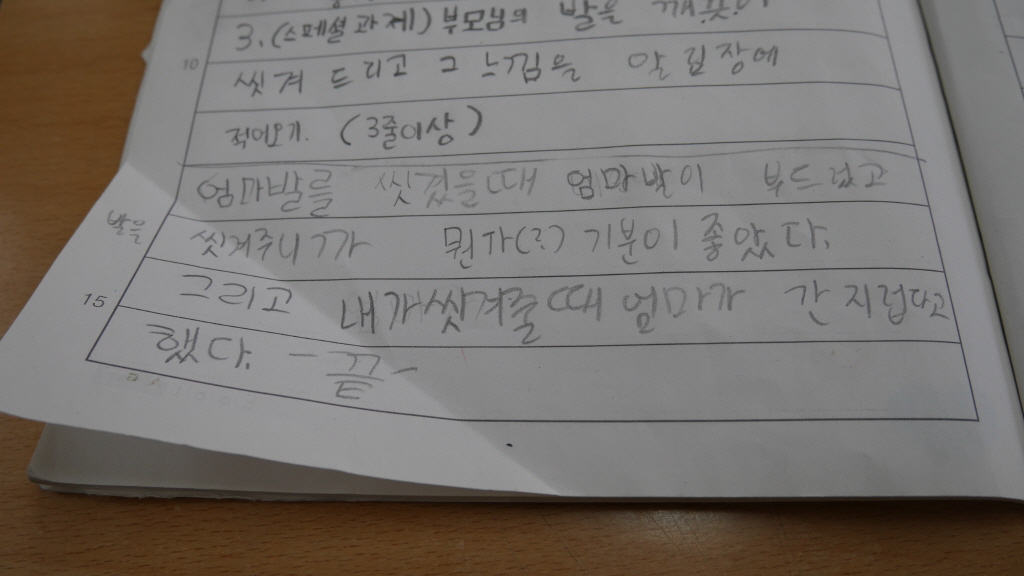 3. (스페셜과제) 부모님의 발을 깨끗이
10
씻겨 드리고 그 느낌을 알림장에
적어오기. (3줄이상)
엄마발를 씻겼을때 엄마발이 부드럽고
발을 씻겨주니 뭔가(?) 기분이 좋았다.
15
그리고 내가씻겨줄때 엄마가 간지럽다고
했다. -끝-